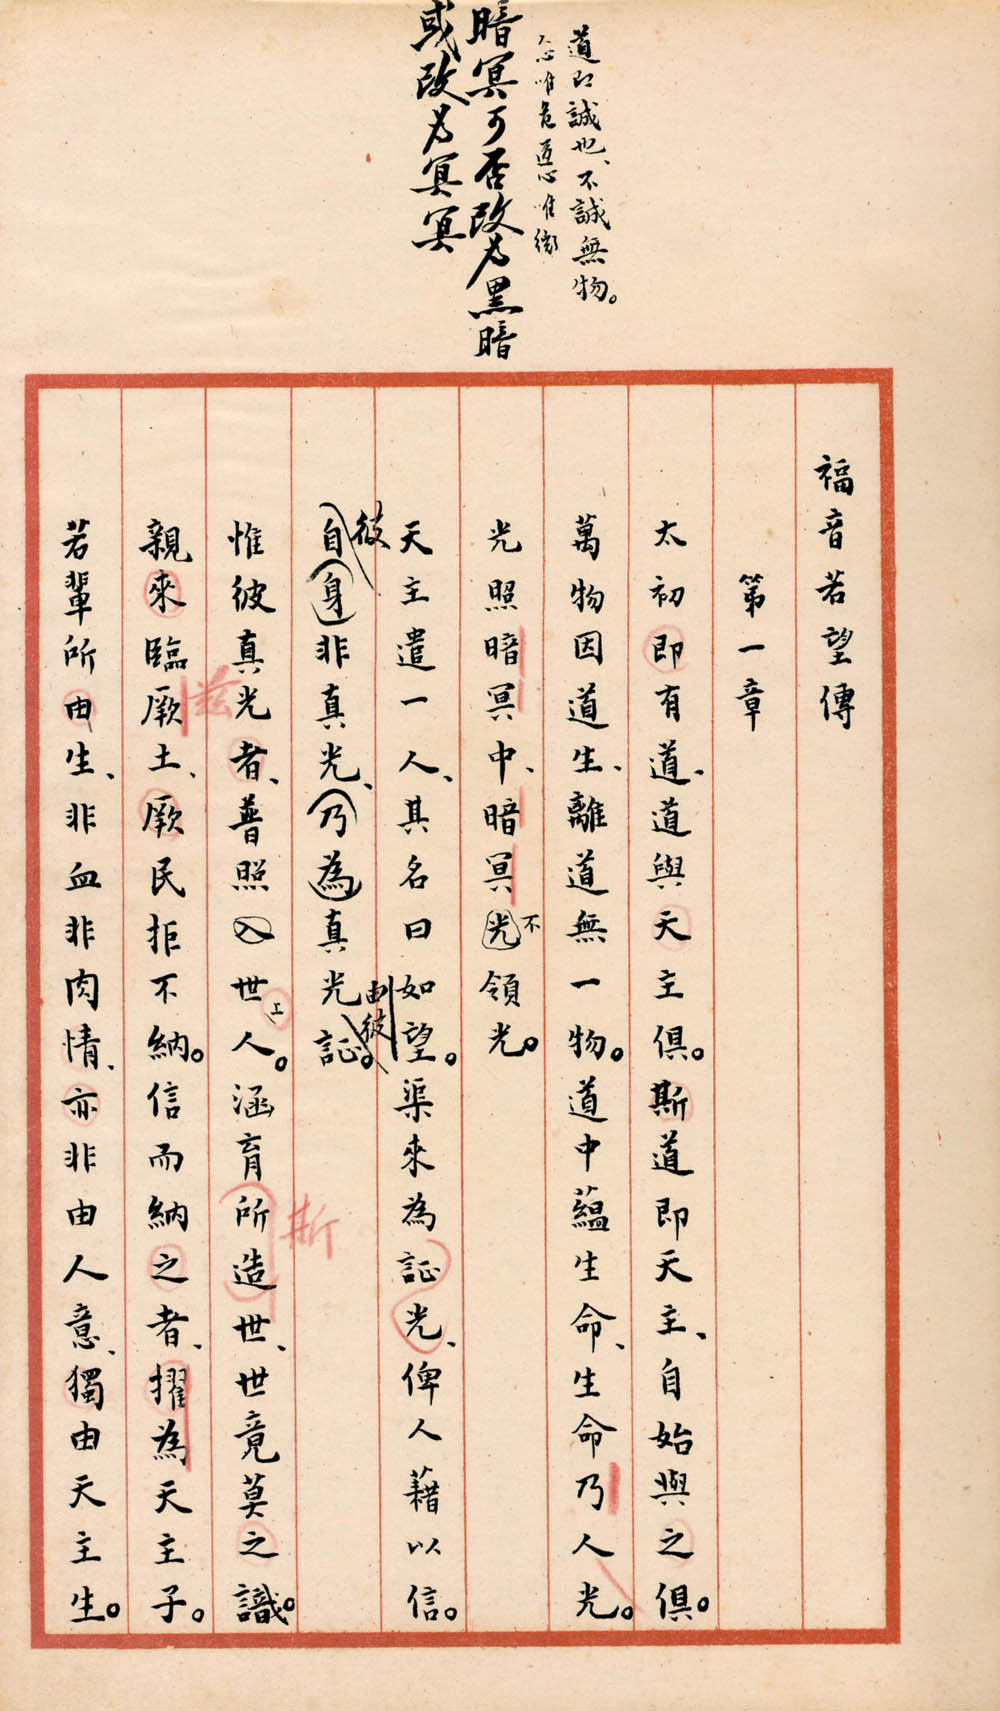 道即誠也、不誠無物。
人心唯危道心唯微
暗冥可否改為黑暗
或改為冥冥
福音若望傳
第一章
太初即有道、道與天主俱。斯道即天主、自始與之俱。
萬物因道生、離道無一物。道中蘊生命、生命乃人光。
光照暗冥中、暗冥光領光。
不
天主遣一人、其名曰如望。渠來為証光、俾人藉以信。
彼
由彼
自身非真光、乃為真光証。
惟彼真光者、普照入世人。涵育所造世、世竟莫之識。
上
斯
親來臨厥土、厥民拒不納。信而納之者、擢為天主子。
茲
若輩所由生、非血非肉情、亦非由人意、獨由天主生。